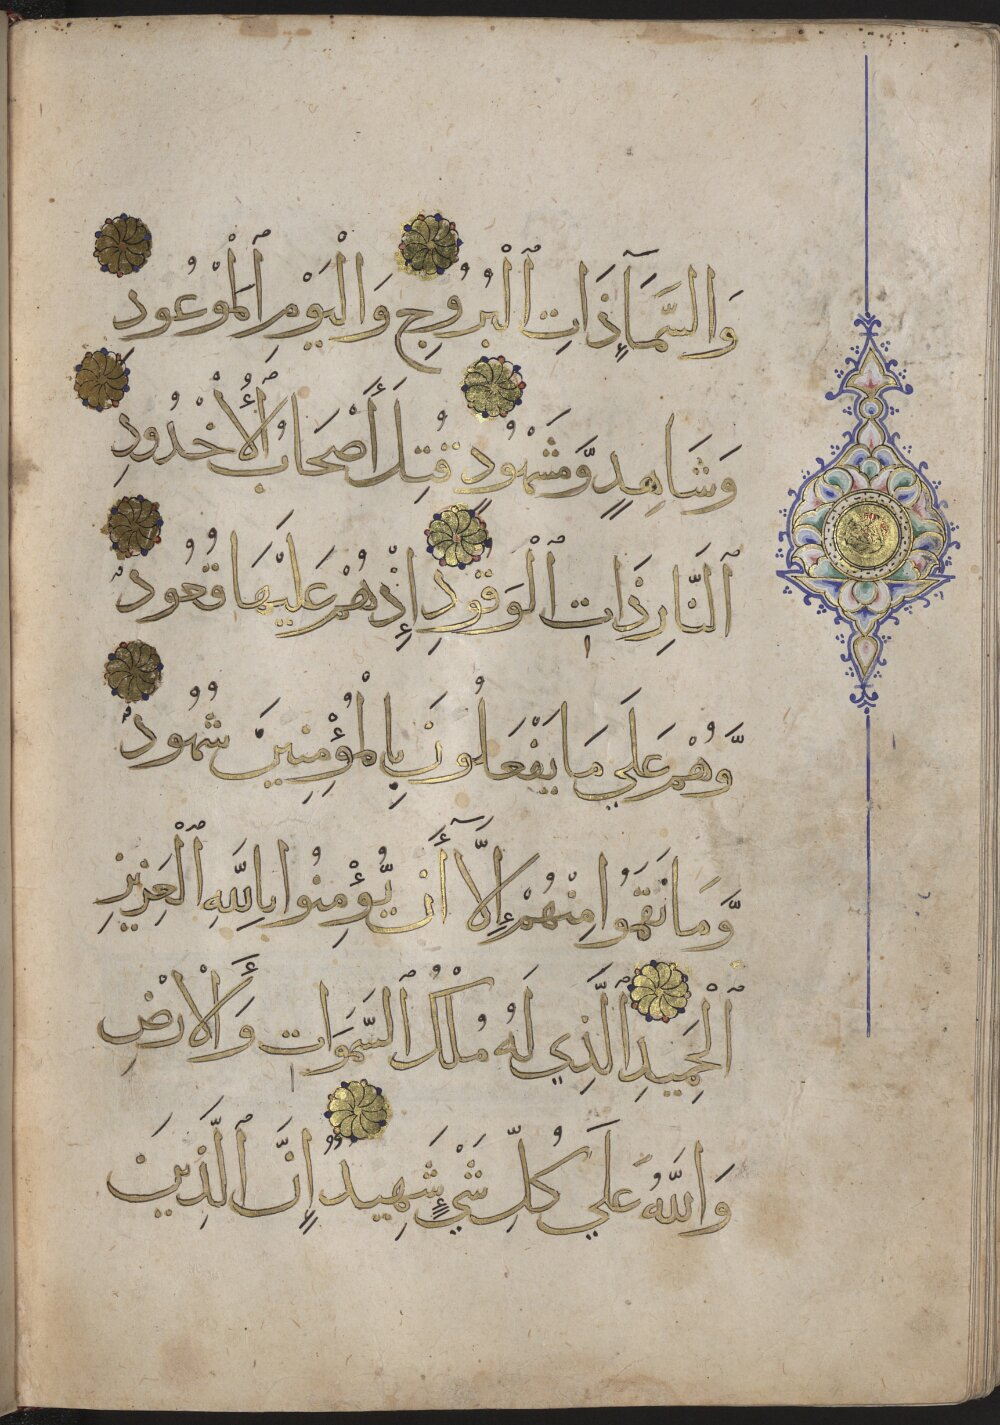 وَالسَّمَآءِ ذَاتِ ٱلْبُرُوجِ وَالْيَوْمِ ٱلْمَوْعُودِ
وَشَاهِدٍ وَّمَشْهُودٍ قُتِلَ أَصْحَابُ ٱلْأُخْدُودِ
ٱلنَّارِ ذَاتِ ٱلْوَقُودِ إِذْ هُمْ عَلَيْهَا قُعُودٌ
وَّهُمْ عَلَي مَا يَفْعَلُونَ بِالْمُؤْمِنِينَ شُهُودٌ
وَّمَا نَقَمُوا مِنْهُمْ إِلَّآ أَن يُّؤْمِنُوا بِاللَّهِ ٱلْعَزِيزِ
ٱلْحَمِيدِ ٱلَّذِي لَهُ مُلْكُ ٱلسَّمَوَاتِ وَٱلْأَرْضِ
وَاللَّهُ عَلَي كُلِّ شَيْءٍ شَهِيدٌ إِنَّ ٱلَّذِينَ